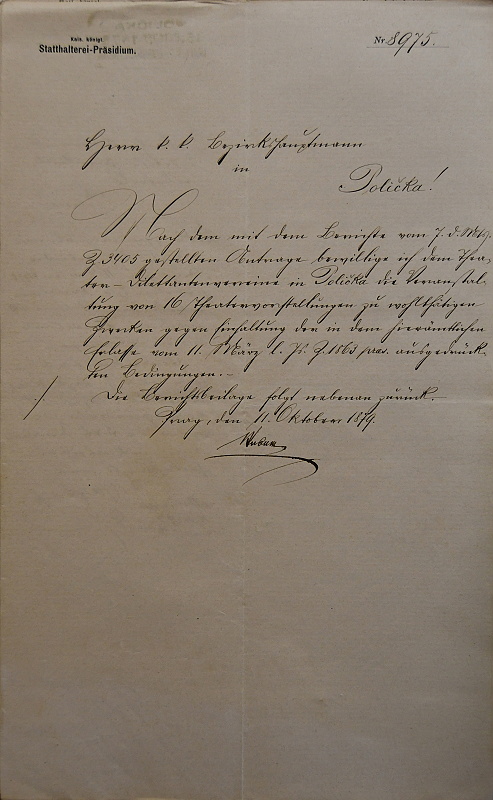 Kais. königl.
Statthalterei-Präsidium.
Nr. 8975.
Herrn k. k. Bezirkshauptmann
in
Polička!
Nach dem mit dem Berichte vom 7. d. Mts.
Z 3405 gestellten Antrage bewillige ich dem Thea-
ter-Dilettantenvereine in Polička die Veranstal-
tung von 16 Theatervorstellungen zu wohlthätigen
Zwecken gegen Einhaltung der in dem hierämtlichen
Erlasse vom 11. März l. Js. Z. 1863 praes. ausgedrück-
ten Bedingungen.-
Die Berichtsbeilage folgt nebenan zurück.
Prag, den 11. Oktober 1879.